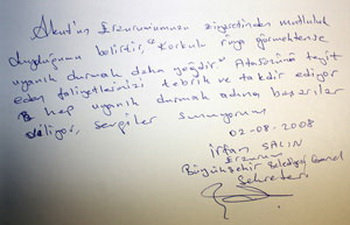 Akut'un Erzurumumuzu ziyaretinden mutluluk
duyduğumu belirtir, "Korkulu rüya görmektense
uyanık durmak daha yeğdir" Atasözünü teyit
eden faliyetlerinizi tebrik ve takdir ediyor
hep uyanık durmak adına başarılar
diliyor, sevgiler sunuyorum
02-08-2008
İrfan SALIN
Erzurum
Büyükşehir Belediyesi Genel
Sekreteri